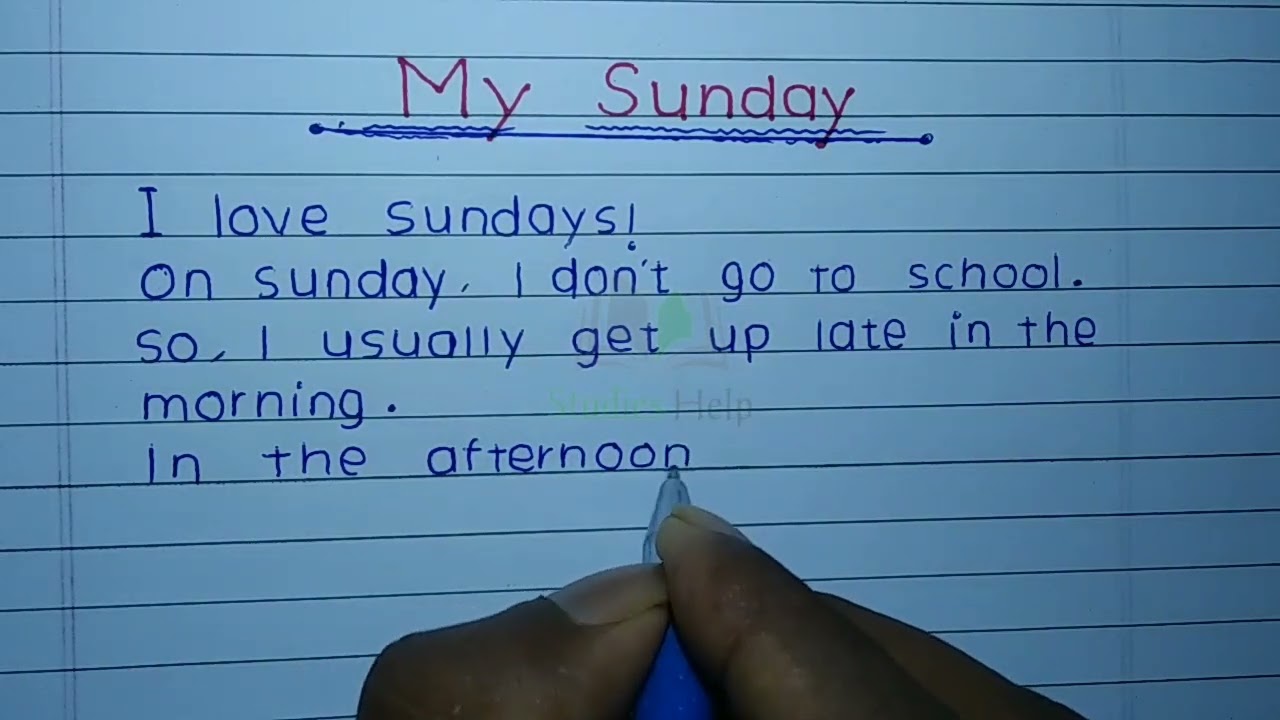 My Sunday
I love sundays!
On sunday, I don't go to school.
so, I usually get up late in the
morning.
In the afternoon
Studies Help